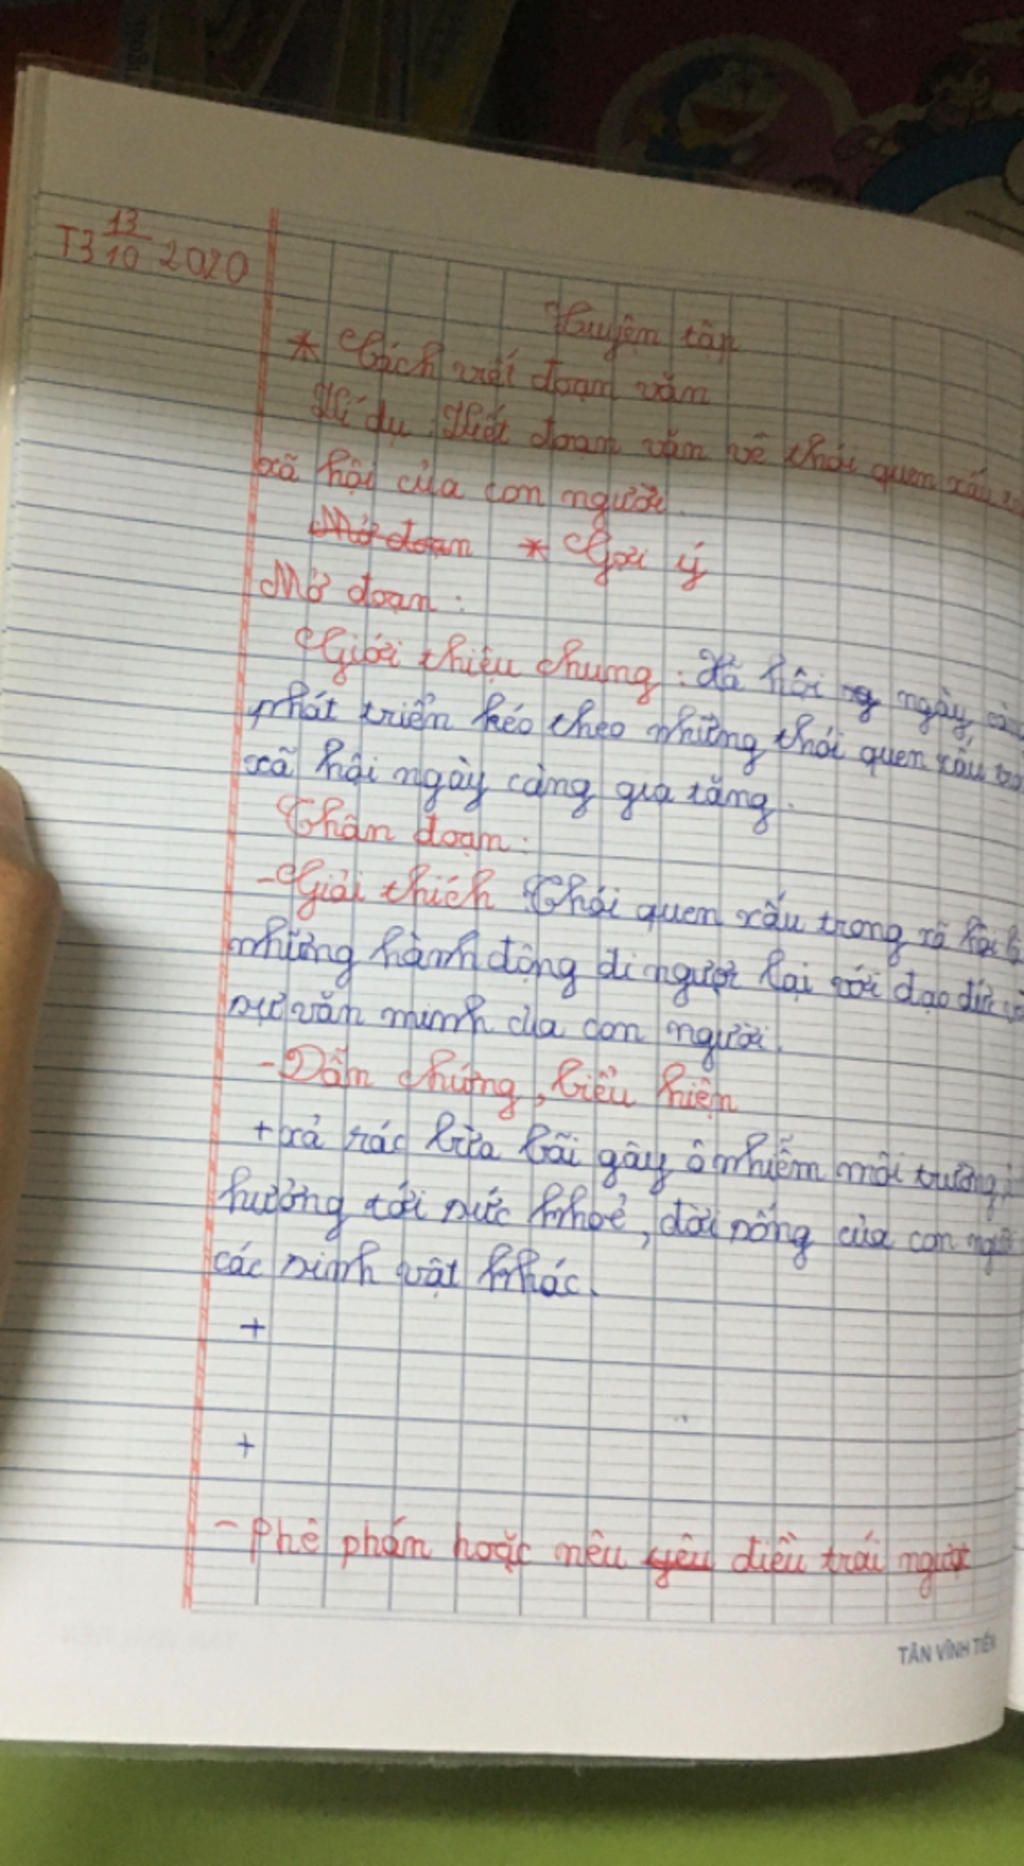 T3 13/10 2020
Luyện tập
* Cách viết đoạn văn
Ví dụ: Viết đoạn văn về thói quen xấu
xã hội của con người.
Mở đoạn * Gợi ý
Mở đoạn:
Giới thiệu chung: Xã hội ng ngày càng
phát triển kéo theo những thói quen xấu
xã hội ngày càng gia tăng.
Thân đoạn:
- Giải thích Thói quen xấu trong xã hội
những hành động đi ngược lại với đạo đức
sự văn minh của con người.
- Dẫn chứng, biểu hiện
+ xả rác bừa bãi gây ô nhiễm môi trường,
hưởng tới sức khoẻ, đời sống của con người
các sinh vật khác.
+
+
- Phê phán hoặc nêu yêu điều trái ngược
TÂN VĨNH TIẾN